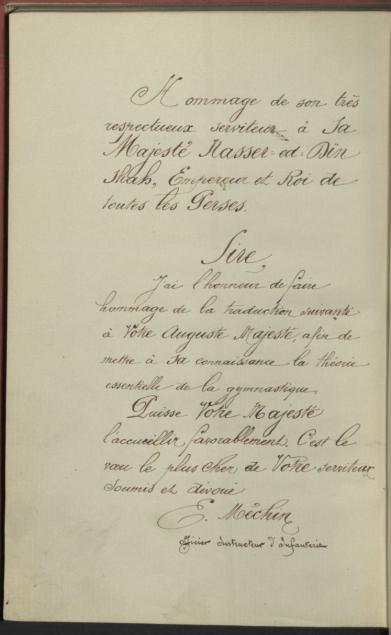 Hommage de son très
respectueux serviteur à Sa
Majesté Nasser-ed-Din
Shah, Empereur et Roi de
toutes les Perses.
Sire,
J'ai l'honneur de faire
hommage de la traduction suivante
à Votre Auguste Majesté, afin de
mettre à sa connaissance la théorie
essentielle de la gymnastique.
Puisse Votre Majesté
l'accueillir favorablement. C'est le
vœu le plus cher de Votre serviteur
soumis et dévoué
E. Méchin
Officier Instructeur d'Infanterie